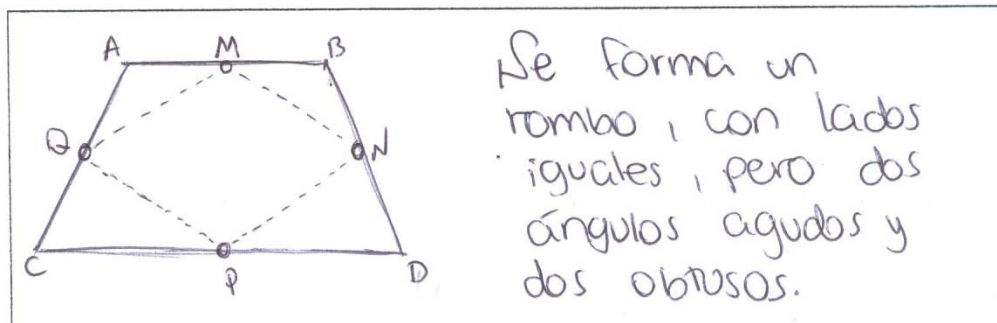 A M B
Q N
C P D
Se forma un
rombo, con lados
iguales, pero dos
ángulos agudos y
dos obtusos.